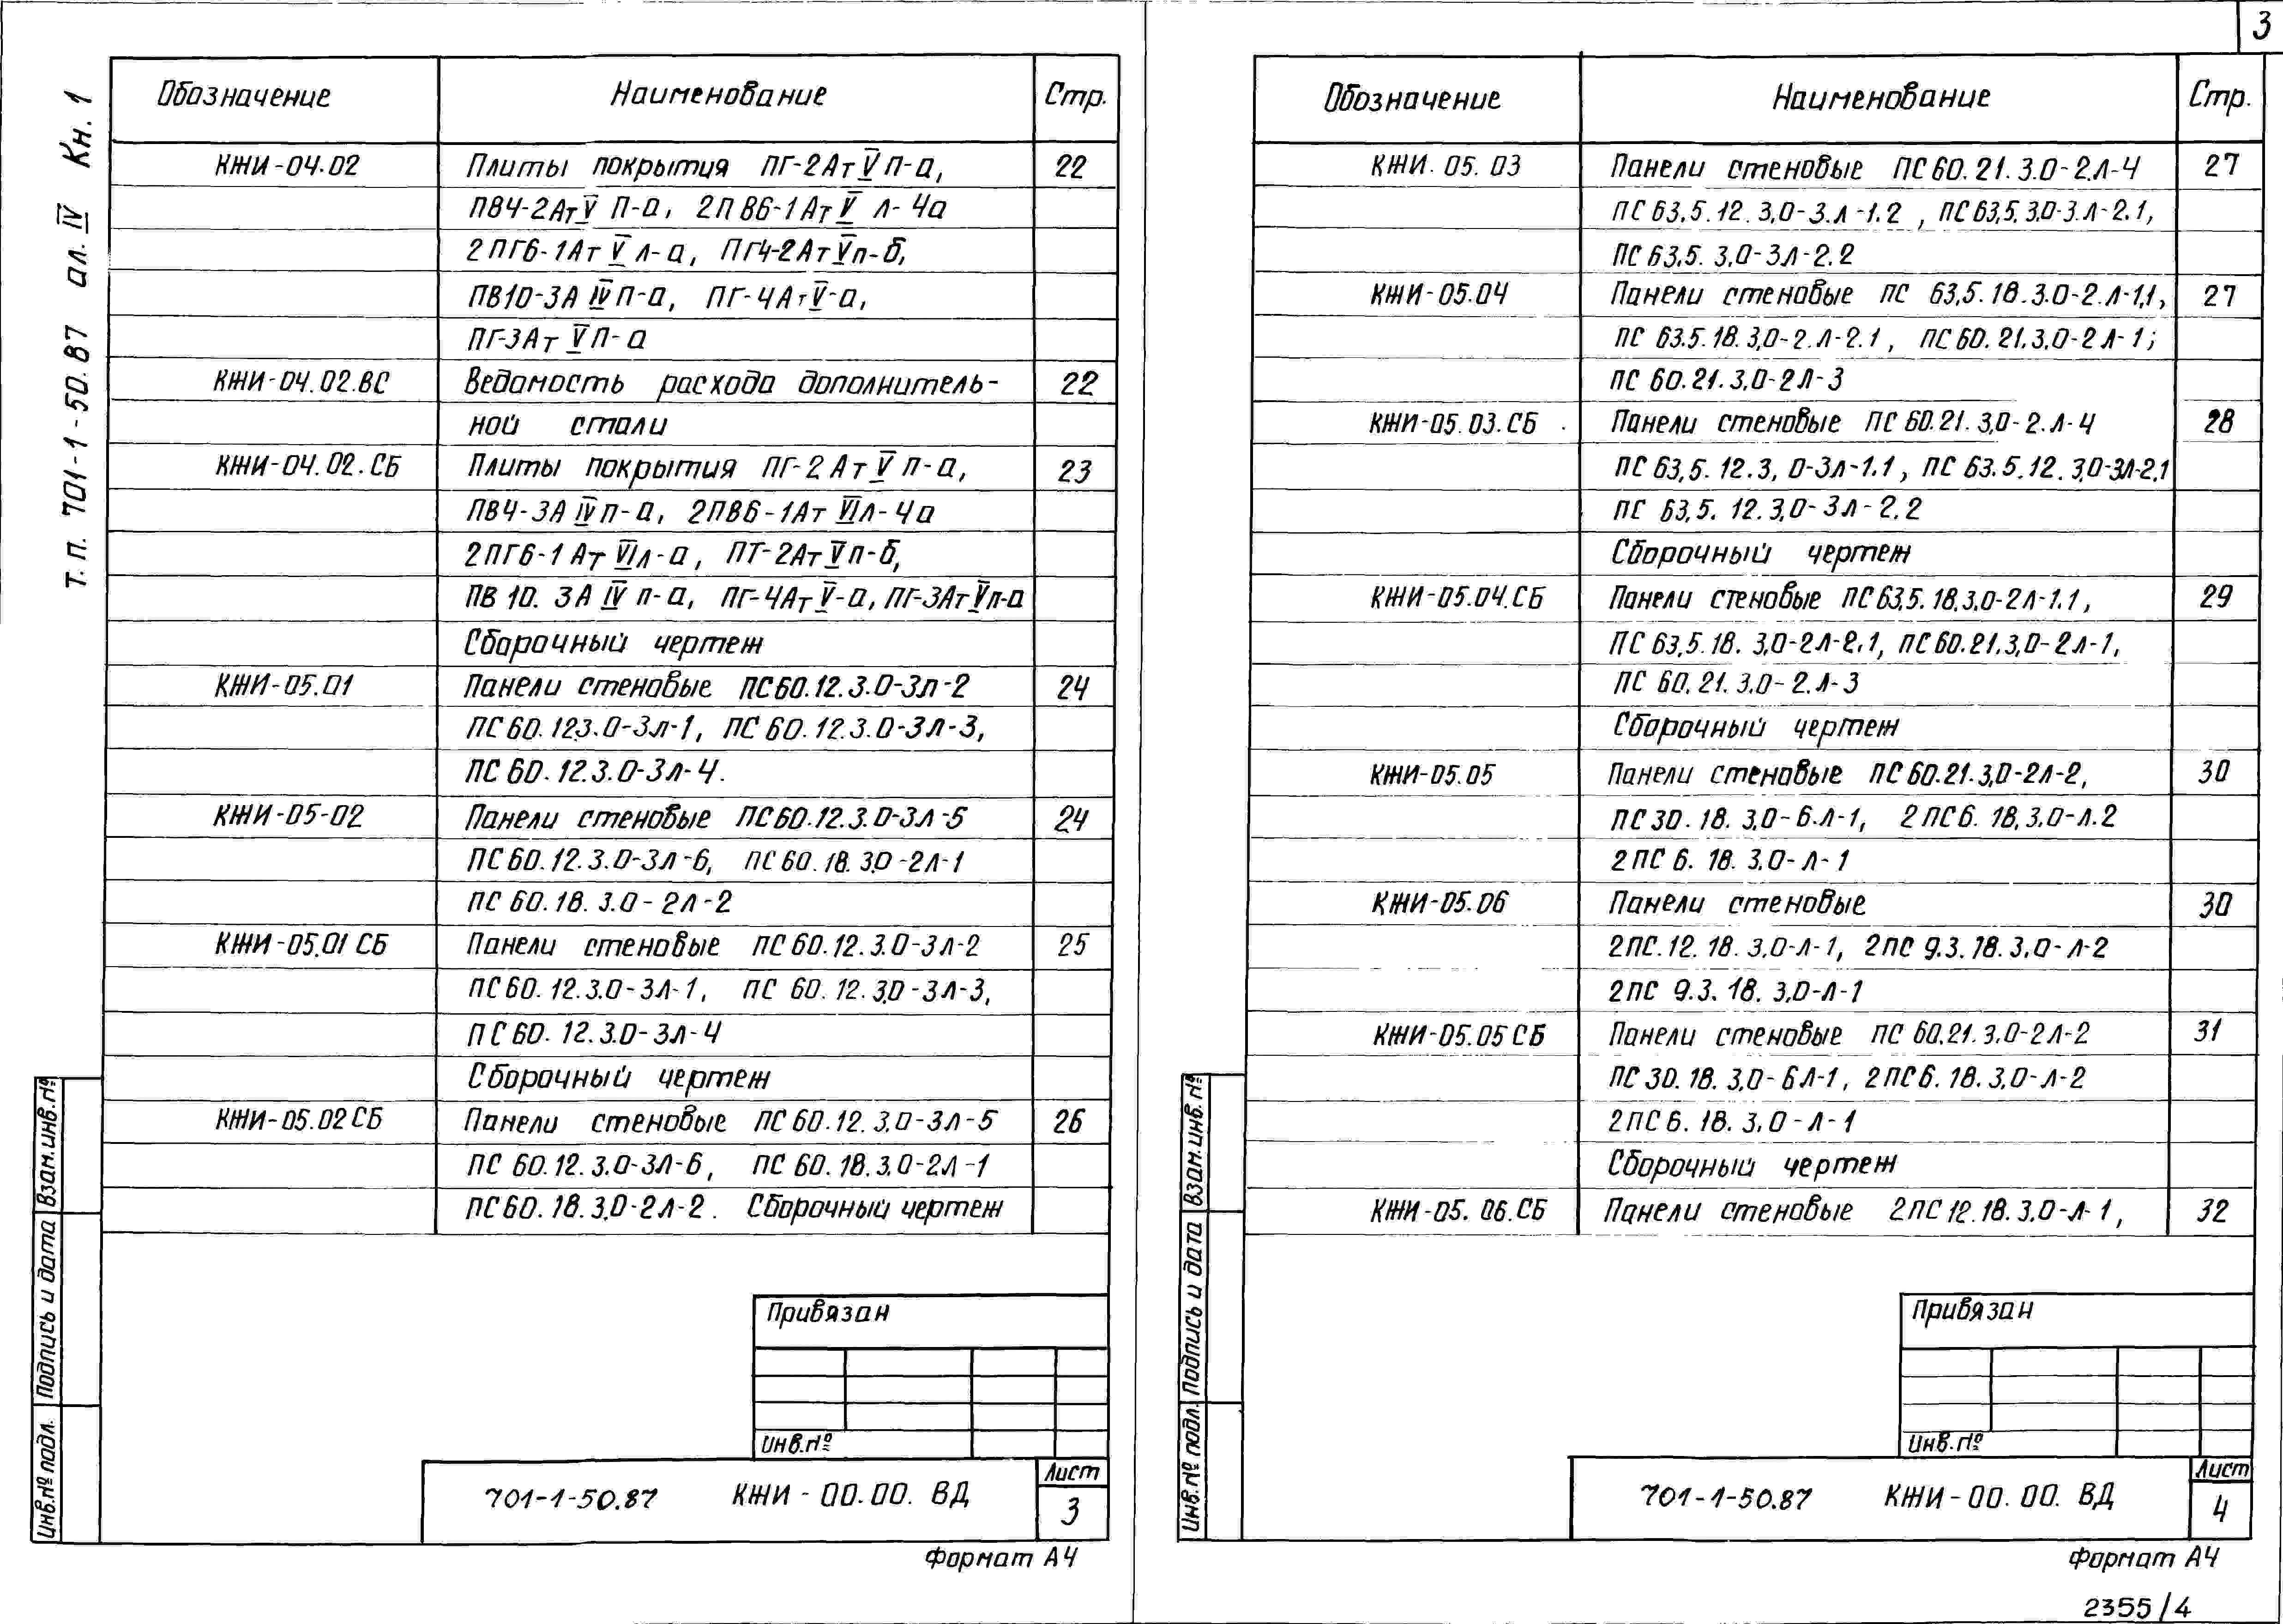 3
Т.п. 701-1-50.87 ал. IV Кн. 1
Обозначение Наименование Стр.
КЖИ-04.02 Плиты покрытия ПГ-2АтV П-а, 22
ПВ4-2АтV П-а, 2ПВ6-1АтV л-4а
2ПГ6-1АтV л-а, ПГ4-2АтVп-б,
ПВ10-3АIVП-а, ПГ-4АтV-а,
ПГ-3АтVП-а
КЖИ-04.02.ВС Ведомость расхода дополнитель- 22
ной стали
КЖИ-04.02.СБ Плиты покрытия ПГ-2АтV П-а, 23
ПВ4-3АIVп-а, 2ПВ6-1АтVIл-4а
2ПГ6-1АтVIл-а, ПТ-2АтVп-б,
ПВ10.3АIV п-а, ПГ-4АтV-а, ПГ-3АтVп-а
Сборочный чертеж
КЖИ-05.01 Панели стеновые ПС60.12.3.0-3л-2 24
ПС60.123.0-3л-1, ПС60.12.3.0-3л-3,
ПС60.12.3.0-3л-4.
КЖИ-05-02 Панели стеновые ПС60.12.3.0-3л-5 24
ПС60.12.3.0-3л-6, ПС60.18.3,0-2л-1
ПС60.18.3.0-2л-2
КЖИ-05.01 СБ Панели стеновые ПС60.12.3.0-3л-2 25
ПС60.12.3.0-3л-1, ПС 60.12.3,0-3л-3,
ПС60.12.3.0-3л-4
Сборочный чертеж
КЖИ-05.02 СБ Панели стеновые ПС60.12.3,0-3л-5 26
ПС 60.12.3.0-3л-6, ПС 60.18.3,0-2л-1
ПС60.18.3,0-2л-2. Сборочный чертеж
Привязан
Инв.№
701-1-50.87 КЖИ-00.00. ВД
Лист
3
Формат А4
Взам.инв.№
Подпись и дата
Инв.№ подл.
Обозначение Наименование Стр.
КЖИ.05.03 Панели стеновые ПС60.21.3.0-2.л-4 27
ПС63,5.12.3,0-3.л-1.2, ПС63,5.3,0-3.л-2.1,
ПС63,5.3,0-3л-2.2
КЖИ-05.04 Панели стеновые ПС 63,5.18.3.0-2.л-1,1, 27
ПС 63.5.18.3,0-2.л-2.1, ПС60.21.3,0-2л-1;
ПС60.21.3,0-2л-3
КЖИ-05.03.СБ Панели стеновые ПС60.21.3,0-2.л-4 28
ПС63,5.12.3,0-3л-1.1, ПС63.5.12.3,0-3л-2.1
ПС 63,5.12.3,0-3л-2.2
Сборочный чертеж
КЖИ-05.04.СБ Панели стеновые ПС63,5.18.3,0-2л-1.1, 29
ПС63,5.18.3,0-2л-2.1, ПС60.21.3,0-2л-1,
ПС 60.21.3,0-2.л-3
Сборочный чертеж
КЖИ-05.05 Панели стеновые ПС60.21.3,0-2л-2, 30
ПС30.18.3,0-6.л-1, 2ПС6.18,3,0-л.2
2ПС6.18.3,0-л-1
КЖИ-05.06 Панели стеновые 30
2ПС.12.18.3,0-л-1, 2ПС9.3.18.3,0-л-2
2ПС 9.3.18.3,0-л-1
КЖИ-05.05 СБ Панели стеновые ПС60.21.3,0-2л-2 31
ПС30.18.3,0-6л-1, 2ПС6.18.3,0-л-2
2ПС6.18.3,0-л-1
Сборочный чертеж
КЖИ-05.06.СБ Панели стеновые 2ПС12.18.3,0-л-1, 32
Привязан
Инв.№
701-1-50.87 КЖИ-00.00. ВД
Лист
4
Формат А4
Взам.инв.№
Подпись и дата
Инв.№ подл.
2355/4